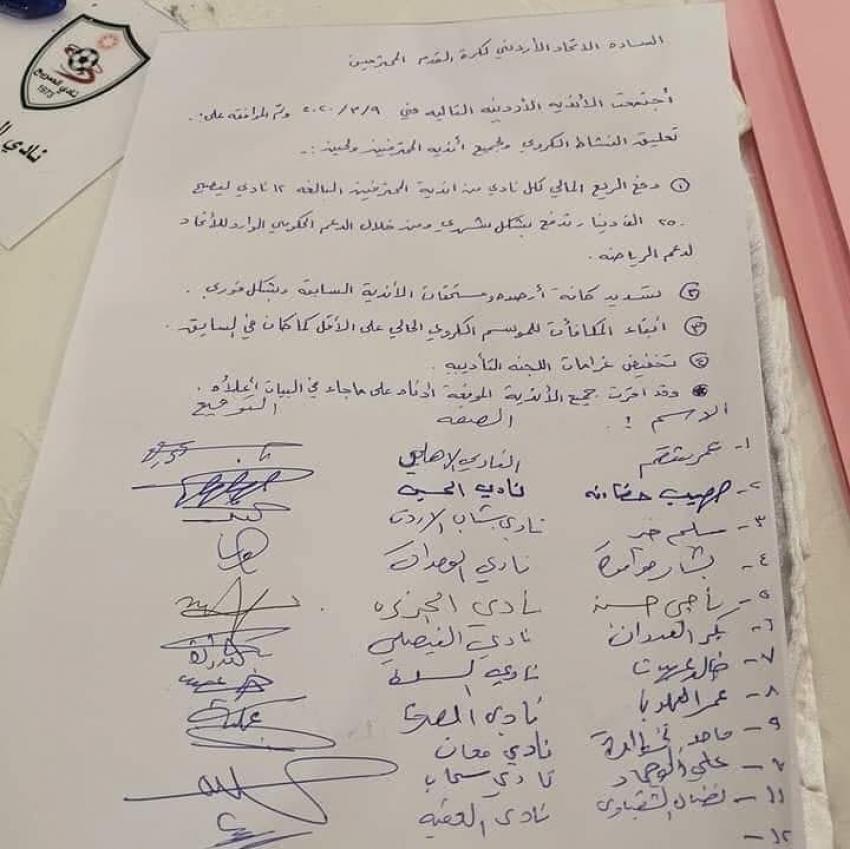 نادي الصريح
1973
نادي ال
الساده الاتحاد الأردني لكرة القدم المحترمين
أجتمعت الأندية الأردنية التالية في ٢٠٢٠/٣/٩ وتم الموافقه على:
تعليق النشاط الكروي ولجميع أندية المحترفين ولحين :-
١ دفع الريع المالي لكل نادي من اندية المحترفين البالغه ١٢ نادي ليصبح
٢٥٠ الف دينار تدفع بشكل شهري ومن خلال الدعم الحكومي الوارد للأتحاد
لدعم الرياضه .
٢ تسديد كافة أرصده ومستحقات الأندية السابقة وبشكل فوري .
٣ أبقاء المكافأت للموسم الكروي الحالي على الأقل كما كان في السابق .
٤ تخفيض غرامات اللجنه التأديبيه .
* وقد اقرت جميع الأندية الموقعة ادناه على ماجاء في البيان أعلاه .
الاسم : الصفه التوقيع
١- عمر النادي الاهلي
٢- صهيب نادي الحسين
٣- سليم خير نادي شباب الاردن
٤- بشار حوامدة نادي الوحدات
٥- ناجي نادي الجزيره
٦- بكر العدوان نادي الفيصلي
٧- خالد عربيات نادي السلط
٨- عمر نادي الصريح
٩- ماجد نادي معان
علي نادي سحاب
١١- نضال نادي العقبه
١٢-